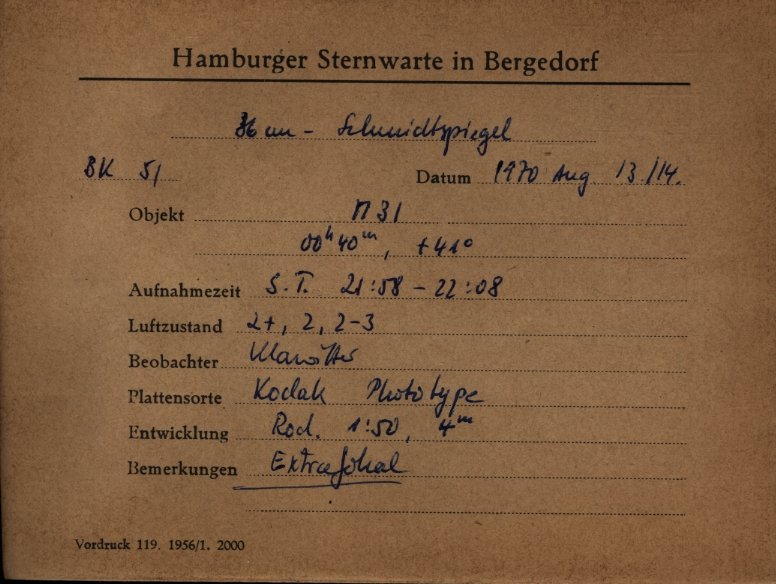 Hamburger Sternwarte in Bergedorf
36 cm - Schmidtspiegel
BK 51 Datum 1970 Aug 13/14.
Objekt M31
00ʰ40ᵐ, +41°
Aufnahmezeit S.T. 21:58 - 22:08
Luftzustand 2+, 2, 2-3
Beobachter
Plattensorte Kodak Phototype
Entwicklung Rod. 1:50, 4ᵐ
Bemerkungen Extrafokal
Vordruck 119. 1956/1. 2000